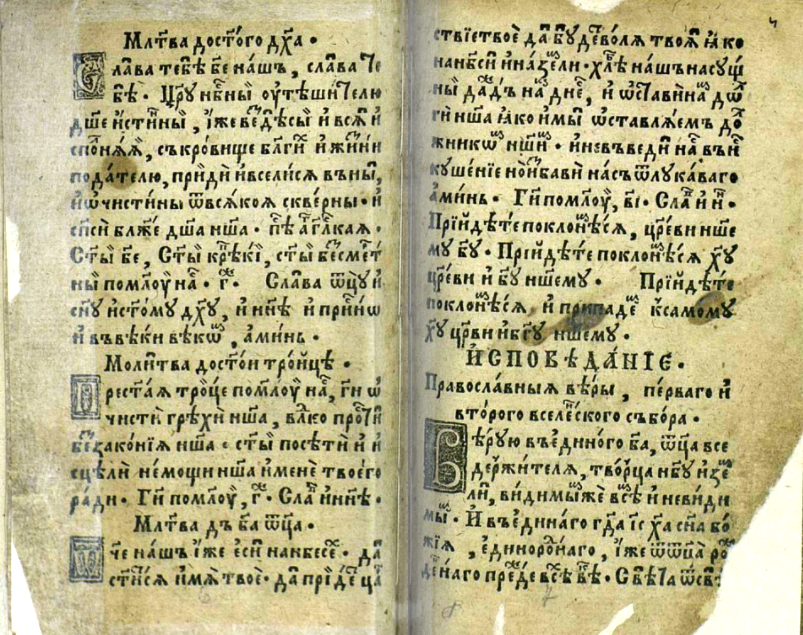 Млт҃ва дост҃ого дх҃а .
Слава тебѣ бе҃ нашъ , слава те
бѣ . Цр҃ю нбⷭ҇ныи оутѣшителю
дш҃е и҆стинныи , и҆же вездѣсыи и҆ всѧ и҆
сполнѧѧ , съкровище бл҃гиⷯ и҆ жизни
подателю , прїиди и҆ вселисѧ въ ны ,
и҆ ѡ҆чисти ны ѿ всѧкоѧ скверны . и҆
сп҃си бл҃же дш҃а нш҃а . пѣⷭ҇ а҆гг҃лкаѧ .
Ст҃ыи бе҃ , Ст҃ыи крѣпкїи , ст҃ыи бесмеⷬт
ныи помлⷭ҇оуи наⷭ҇ . г҃ . Слава ѿц҃у и҆
сн҃у и҆ ст҃ому дх҃у , и҆ нн҃ѣ и҆ приⷭ҇нѡ
и҆ въ вѣки вѣкѡⷨ , а҆минь .
Молитва достои троицѣ .
Прест҃аѧ троⷪ҇це помлⷭ҇оуи наⷭ҇ , ги҃ ѡ҆
чисти грѣхи нш҃а , влⷣко прости
беззаконїѧ нш҃а . ст҃ыи посѣти и҆ и҆
сцѣли немощи нш҃а и҆мене твоего
ради . Ги҃ помлⷭ҇оуи , г҃ . Слаⷡ и҆ нн҃ѣ .
Млт҃ва дъ ба҃ ѿц҃а .
Ѿче нашъ и҆же е҆си на нбⷭ҇се . да
ст҃исѧ и҆мѧ твое . да прїидеⷮ цаⷬ
ствїе твоѐ даⷭ҇ бꙋдеⷮ волѧ твоѧ ꙗ҆ко
на нбⷭ҇си и҆ на земли . хлѣⷠ нашъ насꙋщ
ныи даⷤдь наⷨ днеⷭ҇ , и҆ ѡ҆стави наⷨ дол
ги нша ꙗ҆ко и҆ мы ѡ҆ставлѧем дол
жникѡⷨ нш҃иⷨ . и҆ не въведи наⷭ҇ въ и҆
скушенїе но и҆збави наⷭ҇ ѿ лукаваго
аминь . Ги҃ помлⷭ҇оуи , в҃і . Слаⷡ и҆ нⷩ҇ .
Прїидѣте поклонимⸯсѧ , цр҃еви нше
му б҃у . Прїидѣте поклонимⸯсѧ х҃у
цр҃еви и҆ б҃у нш҃ему . Прїидѣте
поклонимⸯсѧ , и҆ припадеⷨ к самому
х҃у цр҃ви и҆ б҃гу нш҃ему .
И҆СПОВѢДАНІЕ .
Православныѧ вѣры , перваго и҆
второго вселеⷩ҇ского събора .
Вѣрую въ единого ба҃ , ѿц҃а все
держителѧ , творца нб҃у и҆ зем
ли , видимымⸯже всѣⷨ и҆ невиди
мыⷨ . И҆ въ единаго гд҃а і҆с х҃а сн҃а бо
жїѧ , единороⷣнаго , и҆же ѿ ѿц҃а роⷤ
деннаго преⷤде всѣⷯ вѣⷦ . Свѣта ѿ свѣ